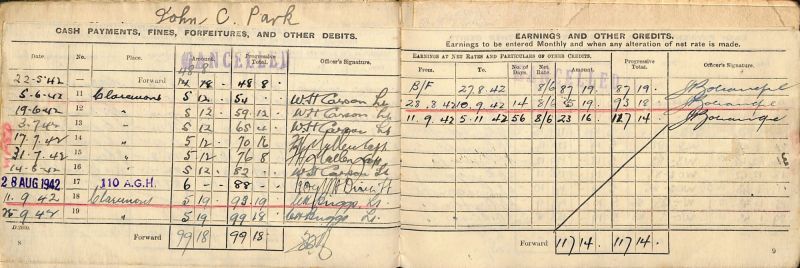 John C. Park
CASH PAYMENTS, FINES, FORFEITURES, AND OTHER DEBITS.
CANCELLED
Date. No. Place. Amount. Progressive Total. Officer's Signature.
22-5-42 Forward 48 8 .
5.6.42 11 Claremont 5 12 54 . W H Carson Lt
19.6.42 12 " 5 12 59.12 W H Carson Lt
3.7.42 13 - 5 12 65 4 W H Carson Lt
17.7.42 14 " 5 12 70 16
31.7.42 15 " 5 12 76 8
16 " 5 12 82 . W H Carson Lt
28 AUG 1942 17 110 A.G.H. 6 - 88 -
11.9.42 18 Claremont 5 19 93 19
9.42 19 " 5 19 99 18
Forward 99 18 99 18 .
8
EARNINGS AND OTHER CREDITS.
Earnings to be entered Monthly and when any alteration of net rate is made.
EARNINGS AT NET RATES AND PARTICULARS OF OTHER CREDITS.
From. To. No. of Days. Net. Rate. Amount. Progressive Total. Officer's Signature.
B/F 27.8.42 8/6 87 19 87 19
28.8.42 10.9.42 14 8/6 5 19 93 18
11.9.42 5.11.42 56 8/6 23 16 117 14
Forward 117 14 . 117 14 .
9